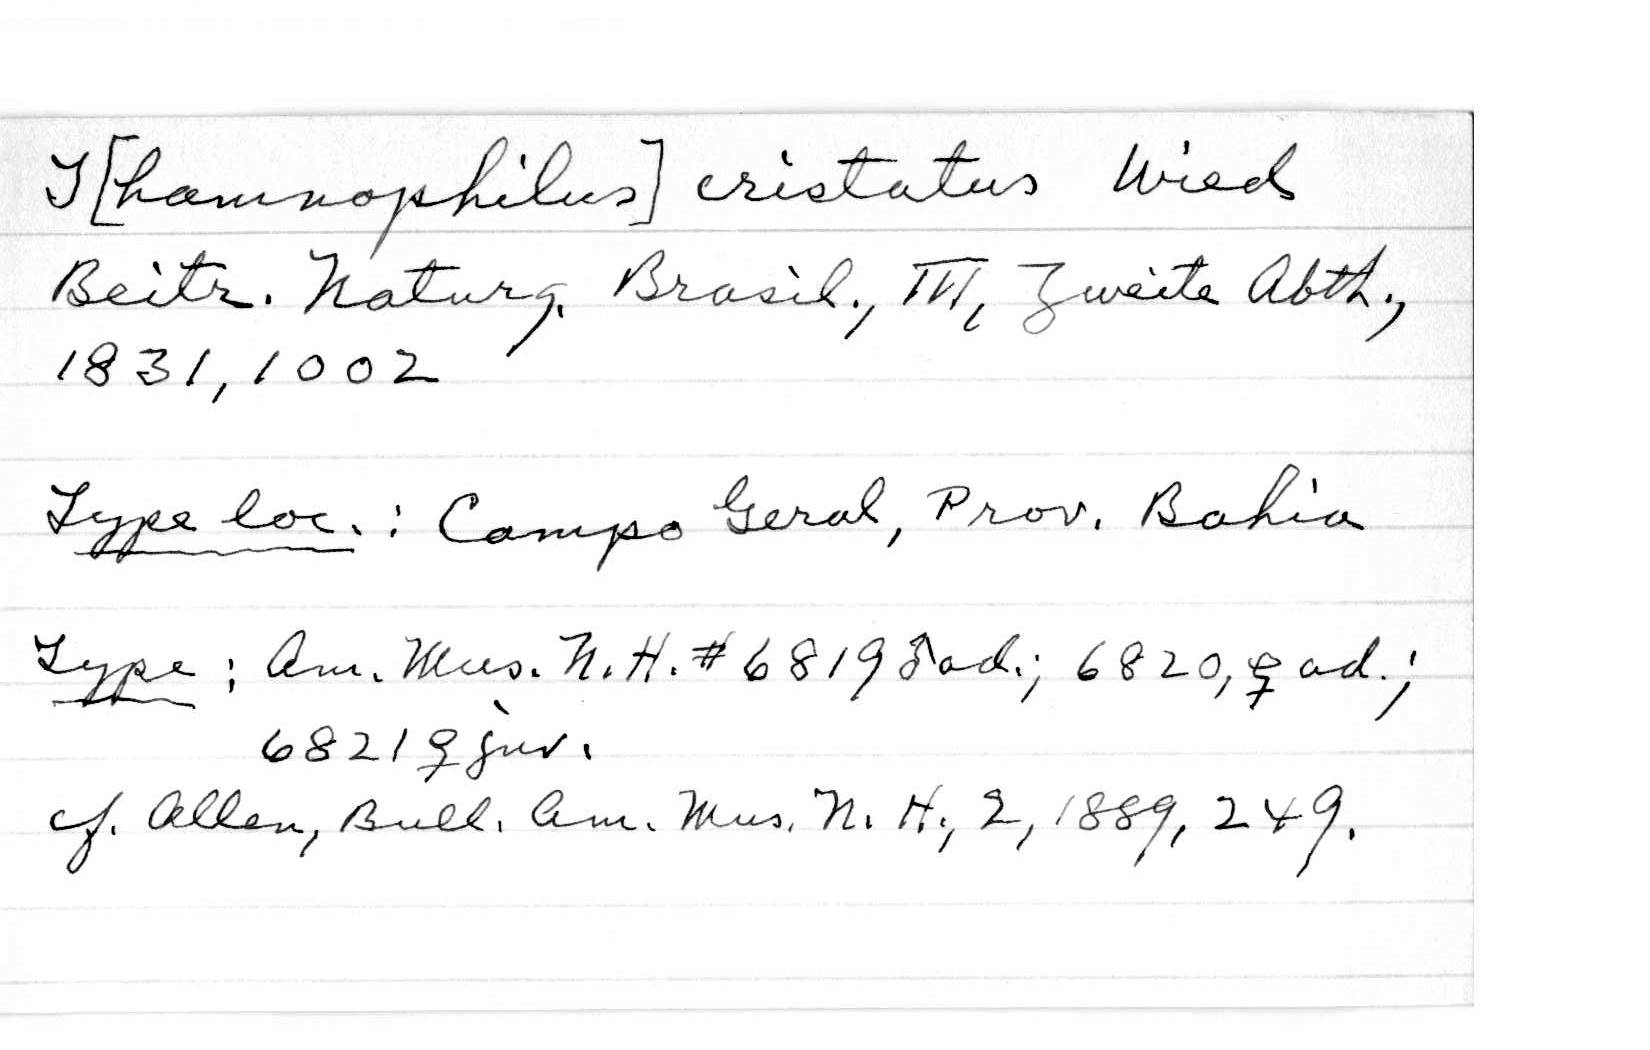 T[hamnophilus] cristatus Wied
Beitr. Naturg. Brasil., III, Zweite Abth.,
1831, 1002
Type loc.: Campo Geral, Prov. Bahia
Type: Am. Mus. N. H. # 6819 ♂ ad.; 6820, ♀ ad.;
6821 ♀ juv.
cf. Allen, Bull. Am. Mus. N. H., 2, 1889, 249.